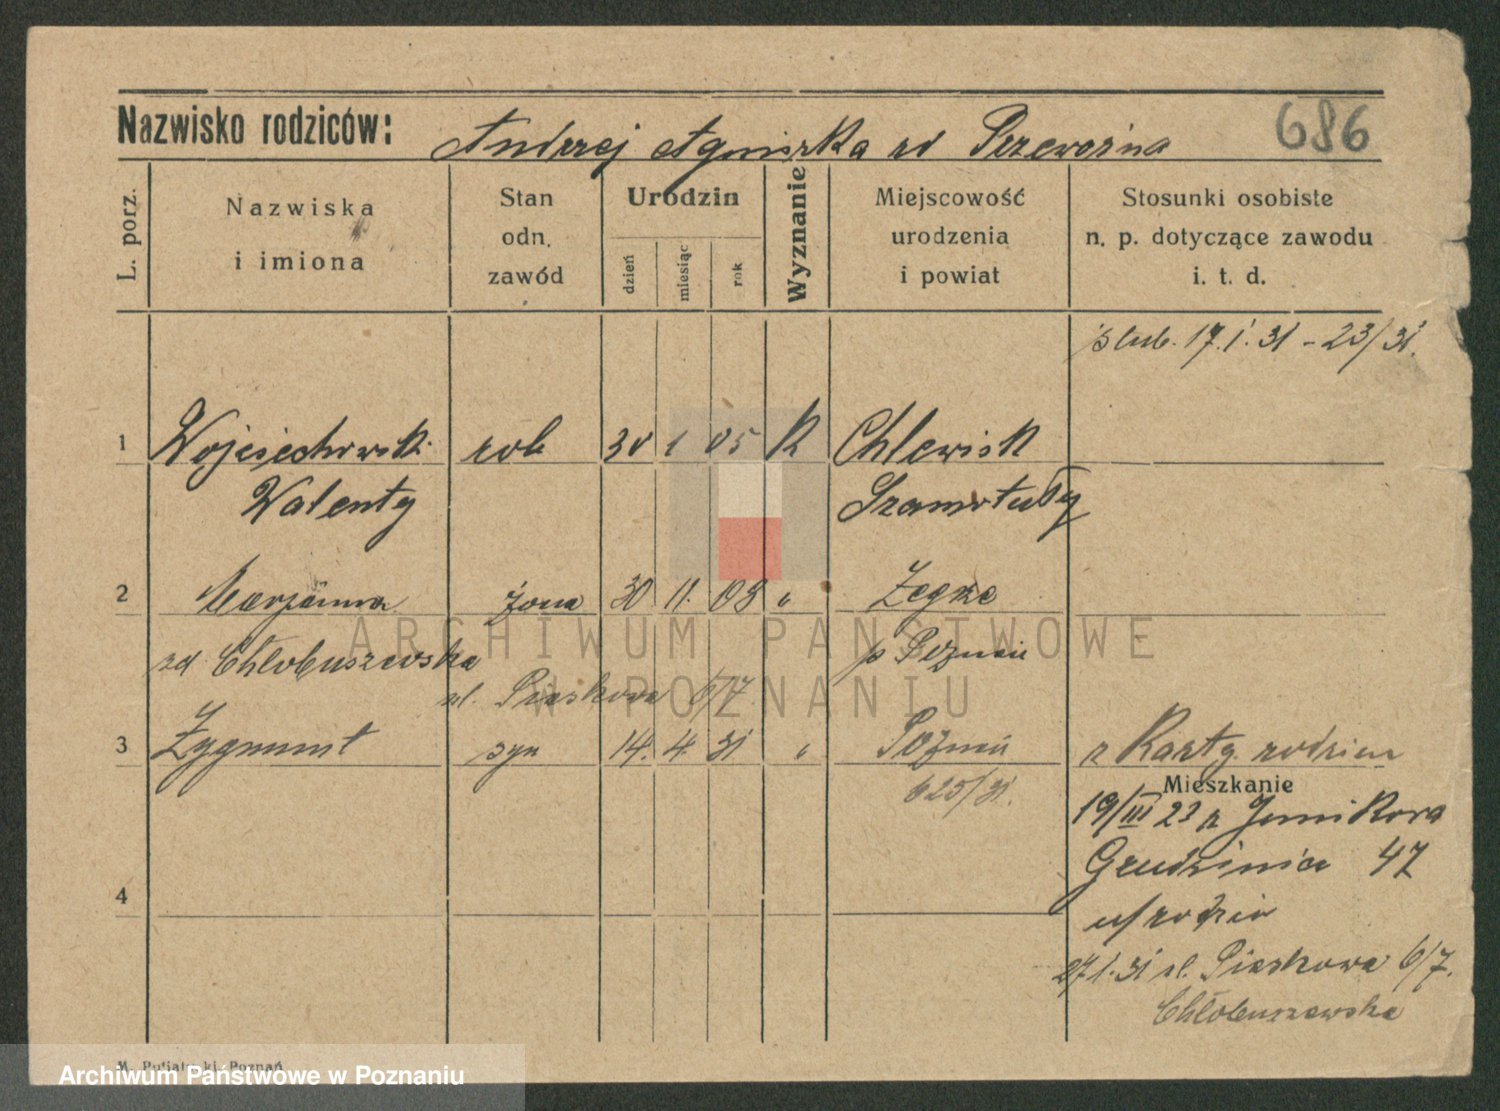 686
Nazwisko rodziców: Andrzej Agniszka zd Przewoźna
L. porz.
Nazwiska i imiona
Stan odn. zawód
Urodzin
dzień
miesiąc
rok
Wyznanie
Miejscowość urodzenia i powiat
Stosunki osobiste n. p. dotyczące zawodu i. t. d.
ślub. 17.1.31 - 23/31.
1 Wojciechowski rob 30 1 05 K Chlewisk
Walenty Szamotuły
2 Marjanna żona 30 11. 08 " Zegrze
zd Chłobuszewska p Poznań
ul. Piaskowa 6/7
3 Zygmunt syn 14. 4 31 " Poznań z Karty rodzin
625/31.
Mieszkanie
19/III 23 z Junikowa
Grudzinica 47
u/rodzin
27.1.31 ul. Piaskowa 6/7.
Chłobuszewska
4
M. Putiatycki, Poznań
ARCHIWUM PAŃSTWOWE
W POZNANIU
Archiwum Państwowe w Poznaniu